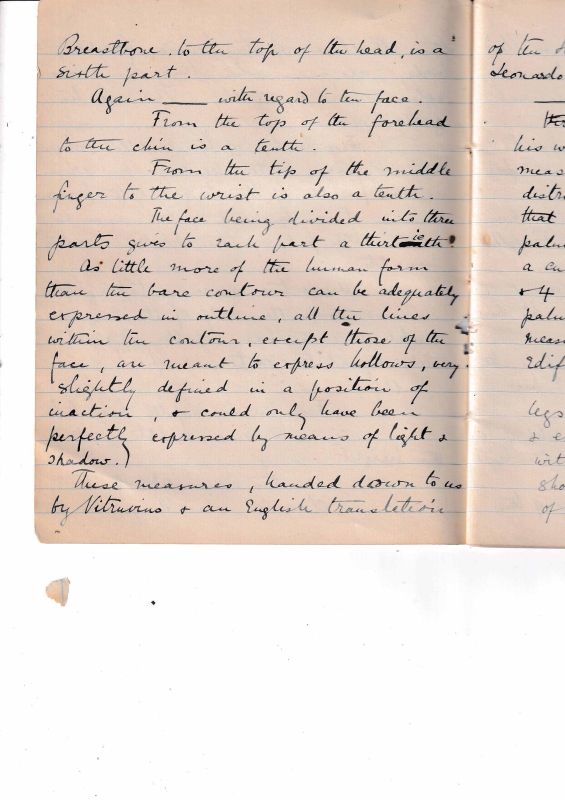 Breastbone to the top of the head, is a
sixth part.
Again —— with regard to the face.
From the top of the forehead
to the chin is a tenth.
From the tip of the middle
finger to the wrist is also a tenth.
The face being divided into three
parts gives to each part a thirtieth.
As little more of the human form
than the bare contour can be adequately
expressed in outline, all the lines
within the contour, except those of the
face, are meant to express hollows, very
slightly defined in a position of
inaction, & could only have been
perfectly expressed by means of light &
shadow.)
These measures, handed down to us
by Vitruvius & an English translation
of the
Leonardo
his
meas
distr
that
palm
& 4
palm
measu
Edif
legs
& e
wit
sho
of